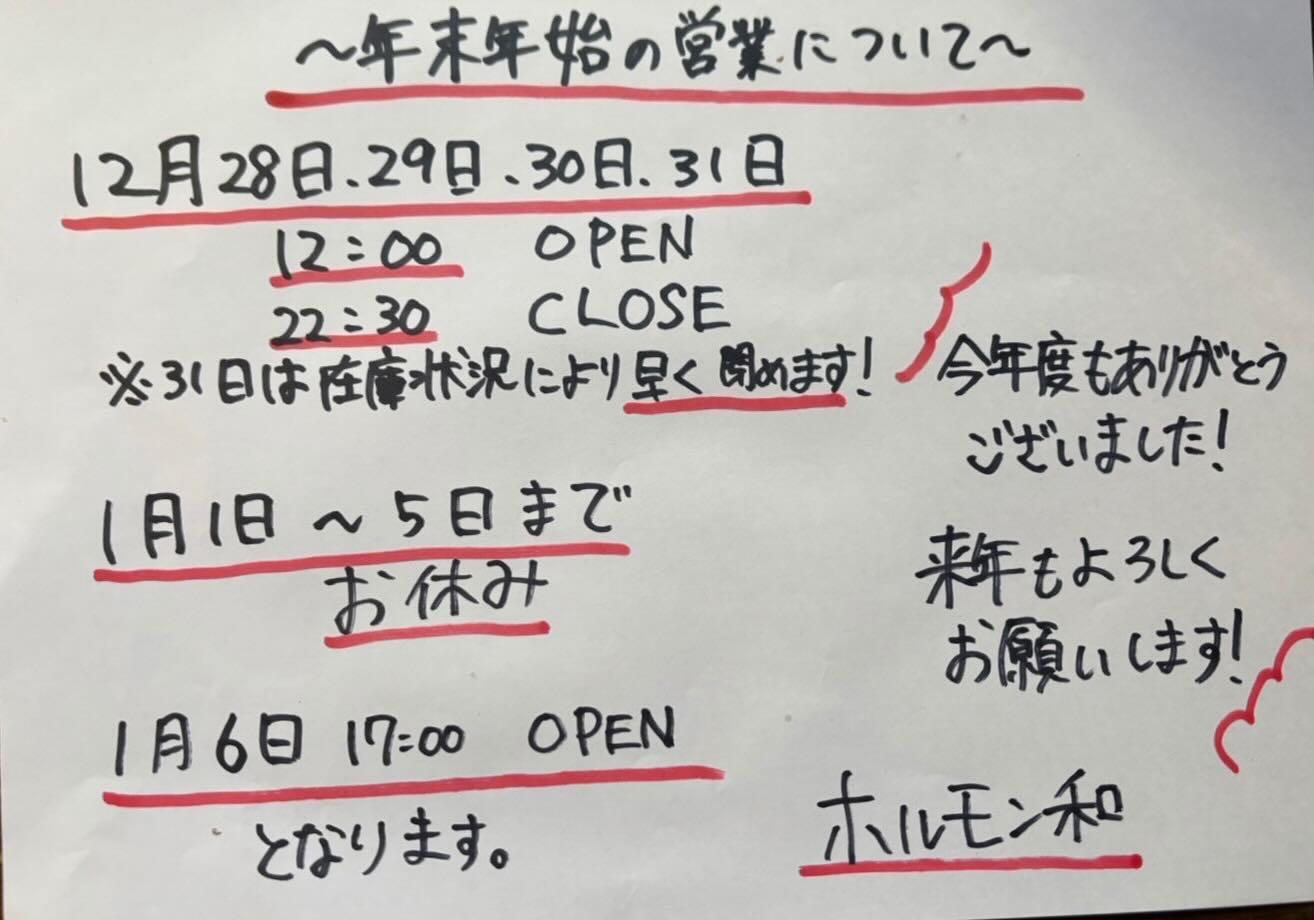 〜年末年始の営業について〜
12月28日、29日、30日、31日
12:00 OPEN
22:30 CLOSE
※31日は在庫状況により早く閉めます!
1月1日〜5日まで
お休み
1月6日 17:00 OPEN
となります。
今年度もありがとう
ございました!
来年もよろしく
お願いします!
ホルモン和